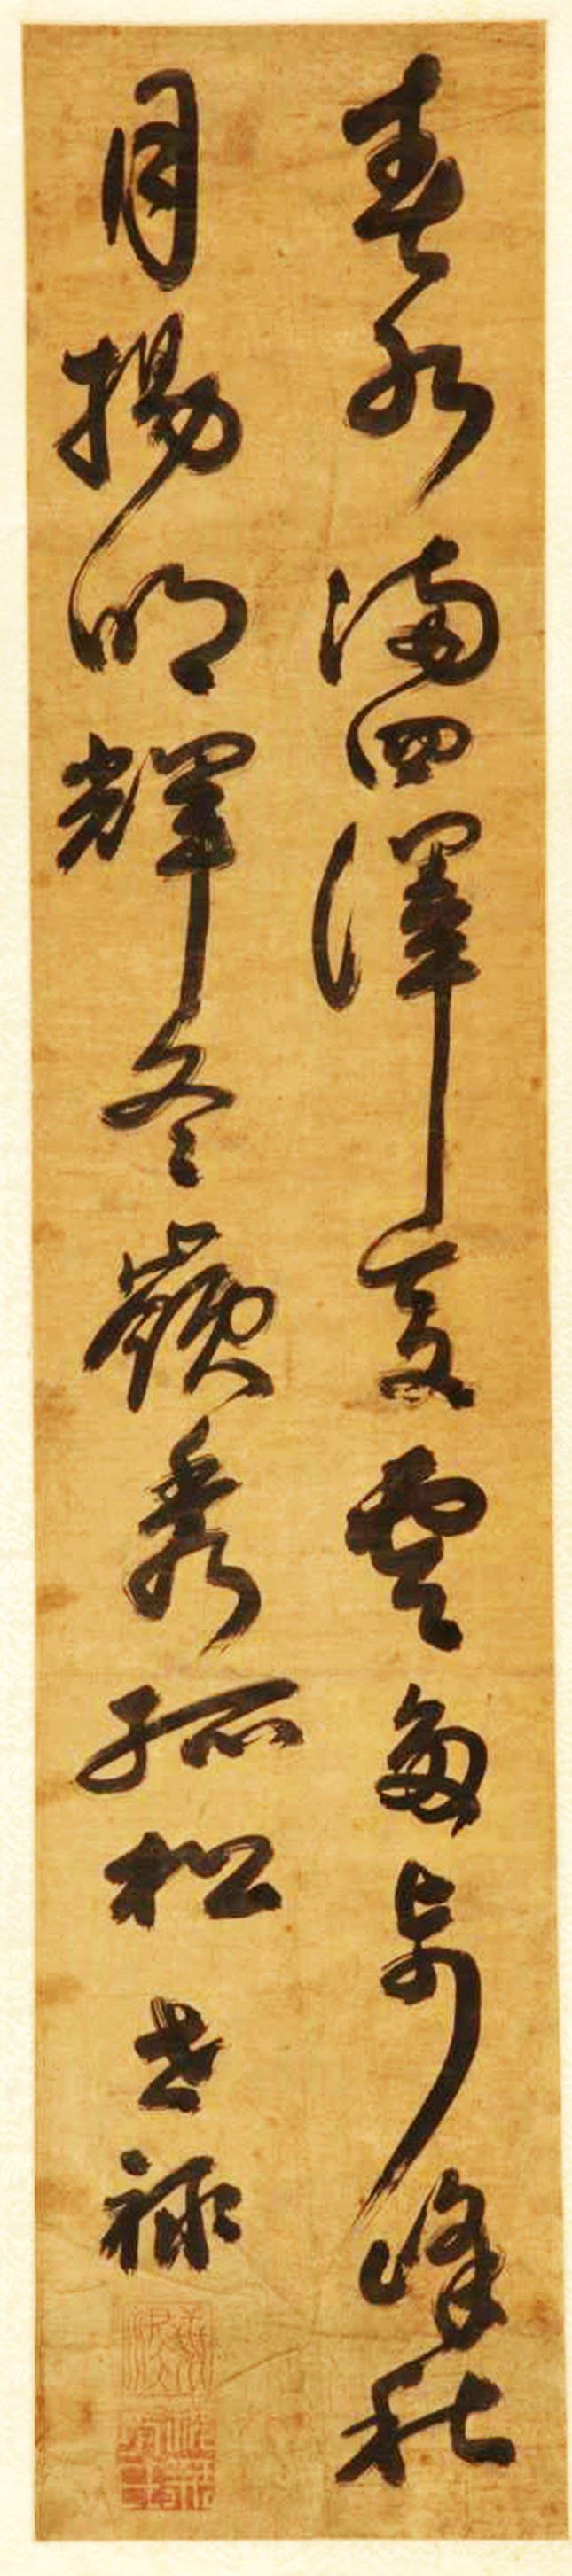 春水滿四澤夏雲多奇峰秋
月揚明輝冬嶺秀孤松 世祿